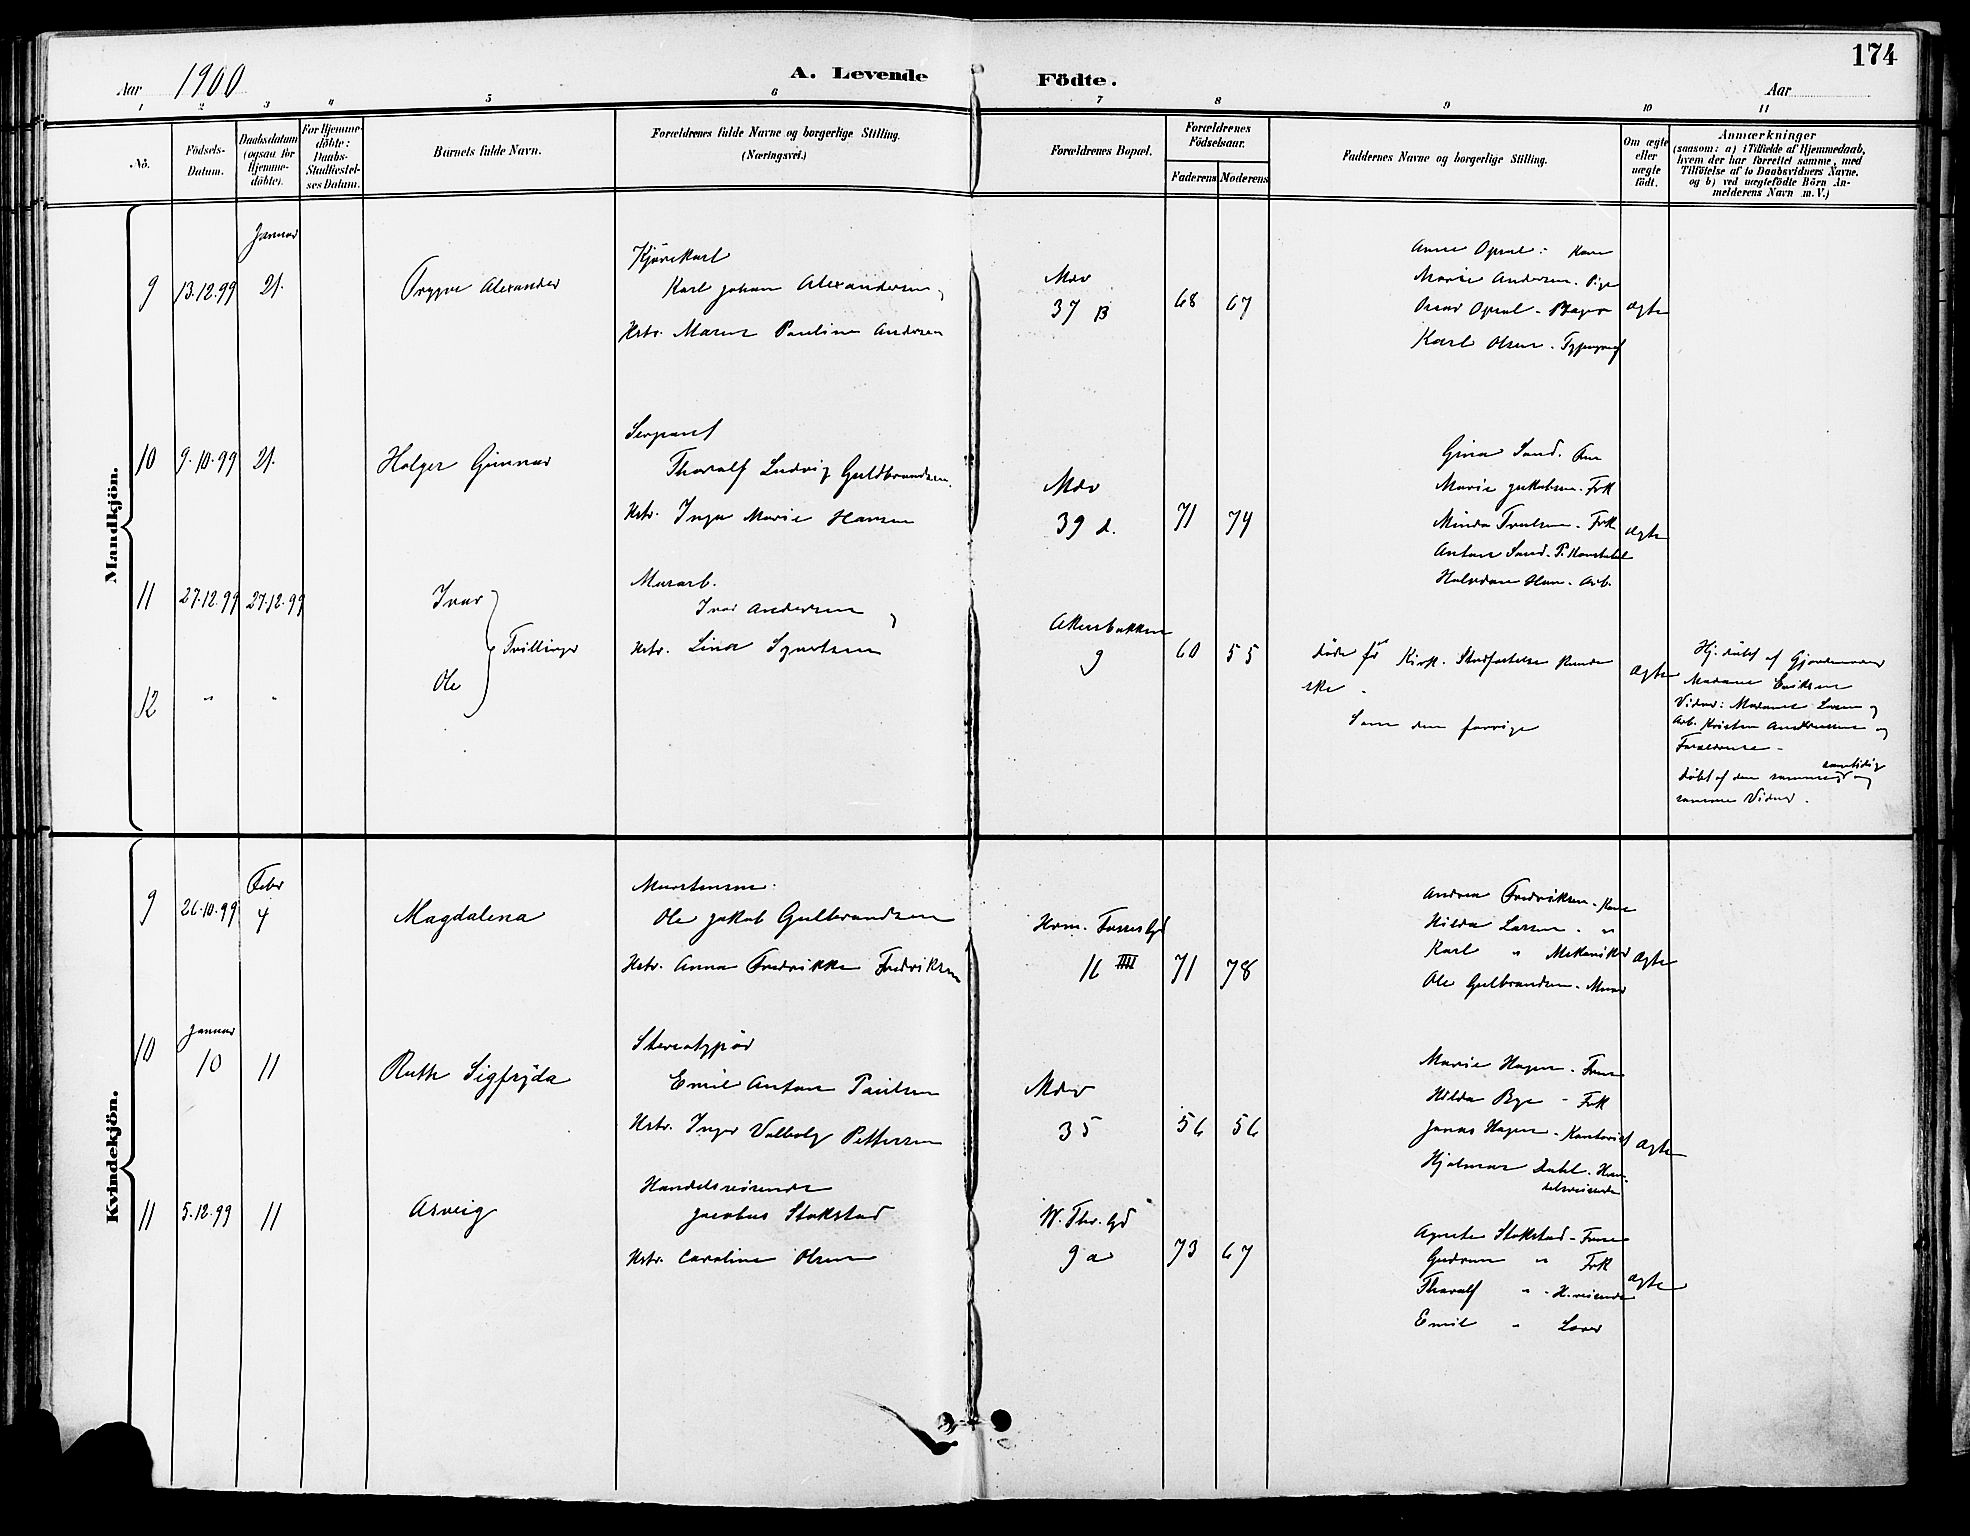 174
Aar 1900
A. Levende Födte.
Aar
1 2 3 4 5 6 7 8 9 10 11
No.
Födsels-Datum.
Daabsdatum (ogsaa for Hjemme-döbte).
For Hjemme-döbte: Daabs-Stadfæstel-ses Datum.
Barnets fulde Navn.
Forældrenes fulde Navne og borgerlige Stilling. (Næringsvei.)
Forældrenes Bopæl.
Forældrenes Födselsaar.
Faderens Moderens
Faddernes Navne og borgerlige Stilling.
Om ægte eller uægte födt.
Anmærkninger
(saasom: a) i Tilfælde af Hjemmedaab,
hvem der har forrettet samme, med
Tilföielse af to Daabsvidners Navne.
og b) ved uægtefödte Börn An-
melderens Navn m. V.)
Mandkjön.
Januar
9 13.12.99 21. Trygve Alexander
Kjørekarl
Karl Johan Alexandersen,
Hstr. Maren Pauline Andersen
Mdv
37 B 68 67
Anne Opsal: Kone
Marie Andersen. Pige
Oscar Opsal - Bager
Karl Olsen. Typograf
ægte
10 9.10.99 21. Holger Gunnar
Sergeant
Thoralf Ludvig Guldbrandsen.
Hstr. Inga Marie Hansen
Mdv
39 d. 71 74
Gina Sand.
Marie Jakobsen. Frk
Minda Truelsen - Frk
Anton Sand. P. Konstabel
Halvdan Arb.
ægte
11 27.12.99 27.12.99 Ivar
Tvillinger
Murarb.
Ivar Andersen
Hstr. Lina Syvertsen
Akersbakken
9 60 55
døde før Kirk. Stadfæstelse kunde
ske.
ægte
Hj. døbt af Gjordemoder
Madame Eriksen
Vidner: Madame Larsen og
Arb. Kristen og
Forældrene -
12 " " Ole
Som den forrige
døbt af den samme samtidig og
samme Vidner.
Kvindekjön.
Febr
9 26.10.99 4 Magdalena
Murstensm.
Ole Jakob Gulbrandsen
Hstr. Anna Fredrikke Fredriksen
16 IIII 71 78
Andrea Fredriksen - Kone
Hilda Larsen - "
Karl " Mekaniker
Ole Gulbrandsen. Murer
ægte
Januar
10 10 11 Ruth Sigfryda
Stereotypør
Emil Anton Paulsen
Hstr. Inger Valborg Pettersen
Mdv
35 56 56
Marie Hagen - Frue
Hilda Bye - Frk
Jonas Hagen - Kontorist
Hjalmar Dahl. Han-
delsreisende
ægte
11 5.12.99 11 Asveig
Handelsreisende
Jacobus Stokstad
Hstr. Caroline Olsen
W. Thr. Gd
9 a 73 67
Agnete Stokstad - Frue
Gudrun " Frk
Thoralf " - H.reisende
Emil "
ægte